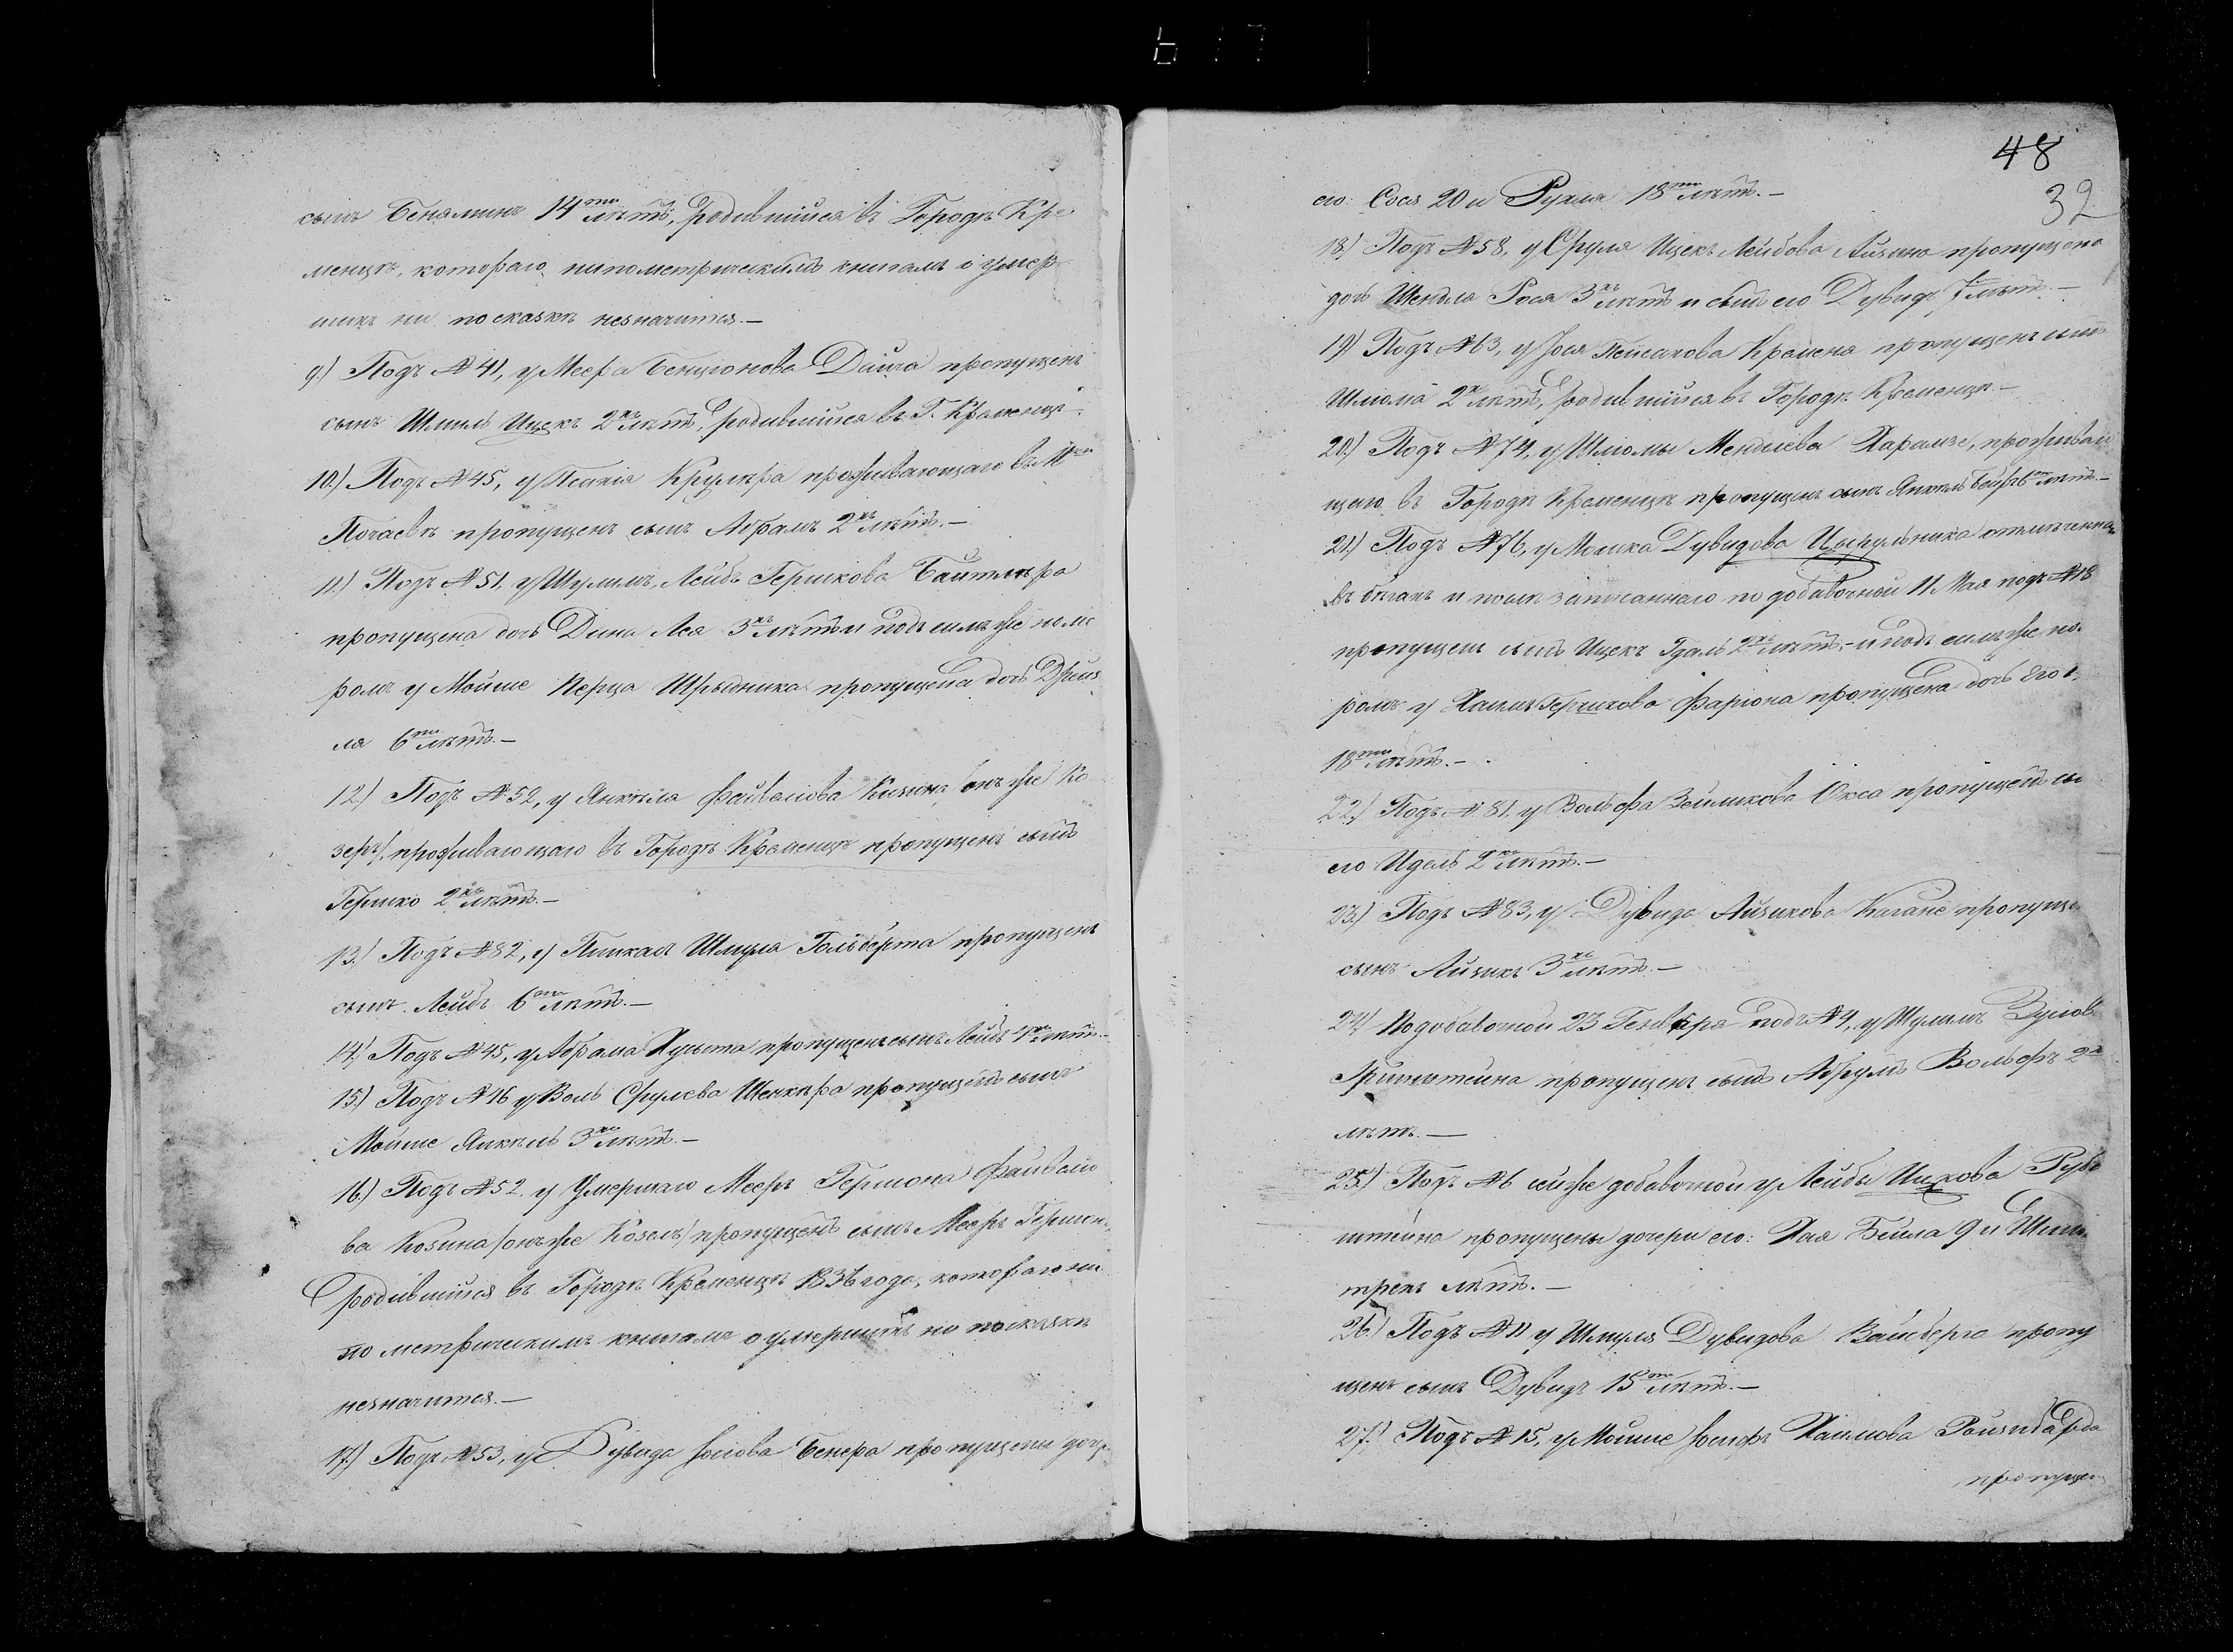 сынъ Бенямин 14ти лѣтъ, родившийся въ Городѣ Кре-
менцѣ, котораго ни по метрическимъ книгамъ о умер-
шихъ ни по сказкѣ незначится.—
9.) Подъ №41, у Меера Бенционова пропущенъ
сынъ Шмиль Ицекъ 2хъ лѣтъ, родившийся въ Г. Кременцѣ.
10.) Подъ №45, у проживающаго въ
Почаевѣ пропущенъ сынъ Абрамъ 2хъ лѣтъ.—
11.) Подъ №51, у Шулимъ Лейбъ Гершкова Байтлера
пропущена дочь Дина Лея 3хъ лѣтъ и подъ симъ же номе
ромъ у Мойше Перца пропущена дочь Дрейз
ля 6ти лѣтъ.—
12.) Подъ №52, у Янкеля Файвелова Козина /онъ же Ко-
зеръ/, проживающаго въ Городѣ Кременцѣ пропущенъ сынъ
Гершко 2хъ лѣтъ.—
13.) Подъ №82, у Пинкаса Шмула Гольберта пропущенъ
сынъ Лейбъ 6ти лѣтъ.—
14.) Подъ №45, у Абрама пропущенъ сынъ Лейбъ лѣтъ.—
15.) Подъ №46 у Воль Срулева Шенкера пропущенъ сынъ
Мойше Янкель 3хъ лѣтъ.—
16.) Подъ №52. у Умершаго Мееръ Гершона Файвело
ва Козина /онъ же Козелъ/ пропущенъ сынъ Мееръ Гершонъ,
родившийся въ Городѣ Кременцѣ 1836 года, котораго ни
по метрическимъ книгамъ о умершихъ ни по сказкѣ
незначится.—
17.) Подъ №53, у Дувида Іосіова Бенера пропущены дочери
48
32
его: Сося 20 и Рухля 18ти лѣтъ.—
18.) Подъ №58, у Сруля Ицекъ Лейбова пропущена
дочь Шендла Рося 3хъ лѣтъ и сынъ его Дувидъ 7 лѣтъ.—
19.) Подъ №63, у Іося Пейсахова Кремена пропущенъ сынъ
Шлома 2хъ лѣтъ, родившийся въ Городѣ Кременцѣ.—
20.) Подъ №74, у Шломы Менделева проживаю
щаго въ Городѣ Кременцѣ пропущенъ сынъ Янкель Беръ 6ти лѣтъ.—
21.) Подъ №76, у Мошка Дувидова Цырульника отмѣченнаго
въ бегахъ и послѣ записаннаго по добавочной 11 Мая подъ №18
пропущенъ сынъ Ицекъ Гдаль 2хъ лѣтъ,— и подъ симъ же но-
ромъ у Хаимъ Гершкова Фаріона пропущена дочь Его
18ти лѣтъ.—
22.) Подъ №81. у Вольфа Зейликова Окса пропущенъ сы
его Идель 2хъ лѣтъ.—
23.) Подъ №83, у Дувида Айзикова Кагане пропуще
сынъ Айзикъ 3хъ лѣтъ.—
24.) По добавочной 23 Генваря подъ №4, у Шулимъ Зуслов
Гринштейна пропущенъ сынъ Абрумъ Вольфъ 2хъ
лѣтъ.—
25.) Подъ №6 сей же добавочной у Лейбы Ицкова Рубе
штейна пропущены дочери его: Хая Бейла 9 и
трехъ лѣтъ.—
26.) Подъ №11 у Шмуля Дувидова Вайсберга пропу
щенъ сынъ Дувидъ 15ти лѣтъ.—
27.) Подъ №15, у Мойше Іосифъ Хаимова
пропущен